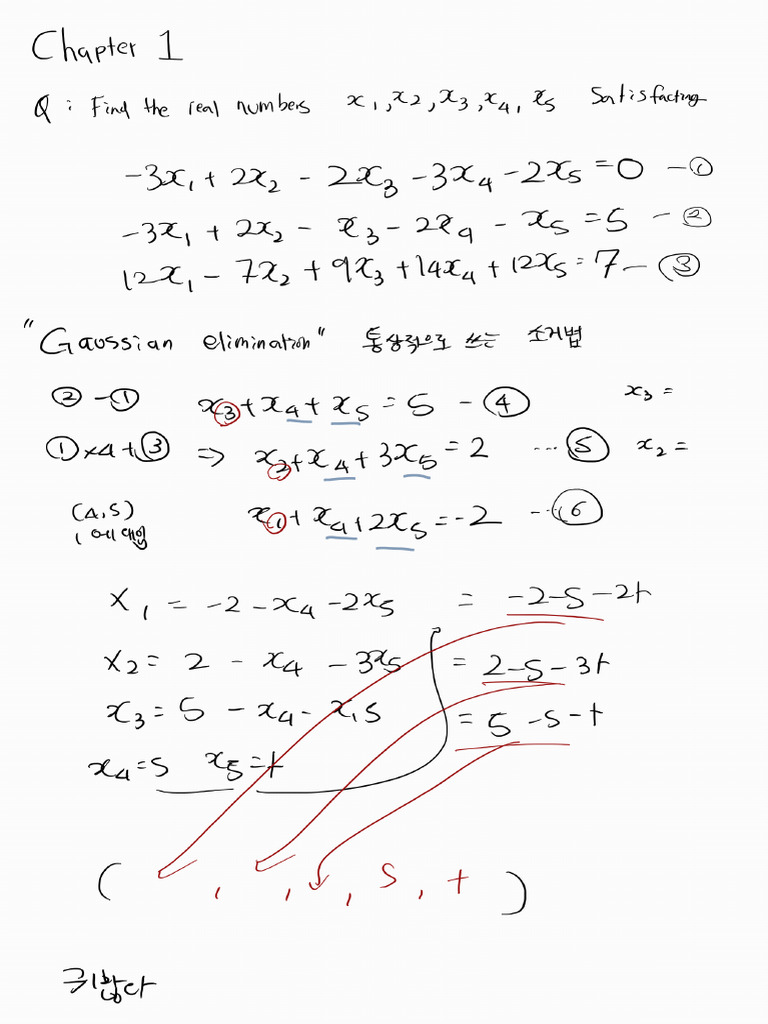 Chapter 1
Q : Find the real numbers x₁, x₂, x₃, x₄, x₅ Satisfacting
-3x₁ + 2x₂ - 2x₃ - 3x₄ - 2x₅ = 0 - ①
-3x₁ + 2x₂ - x₃ - 2x₄ - x₅ = 5 - ②
12x₁ - 7x₂ + 9x₃ + 14x₄ + 12x₅ = 7 - ③
"Gaussian elimination" 통상적으로 쓰는 소거법
② - ① x₃ + x₄ + x₅ = 5 - ④ x₃ =
① x 4 + ③ ⇒ x₂ + x₄ + 3x₅ = 2 ... ⑤ x₂ =
(4,5) x₁ + x₄ + 2x₅ = -2 ... ⑥
, 에 대입
x₁ = -2 - x₄ - 2x₅ = -2-s-2t
x₂ = 2 - x₄ - 3x₅ = 2-s-3t
x₃ = 5 - x₄ - x₅ = 5-s-t
x₄ = s x₅ = t
( , , , s, t )
귀찮다